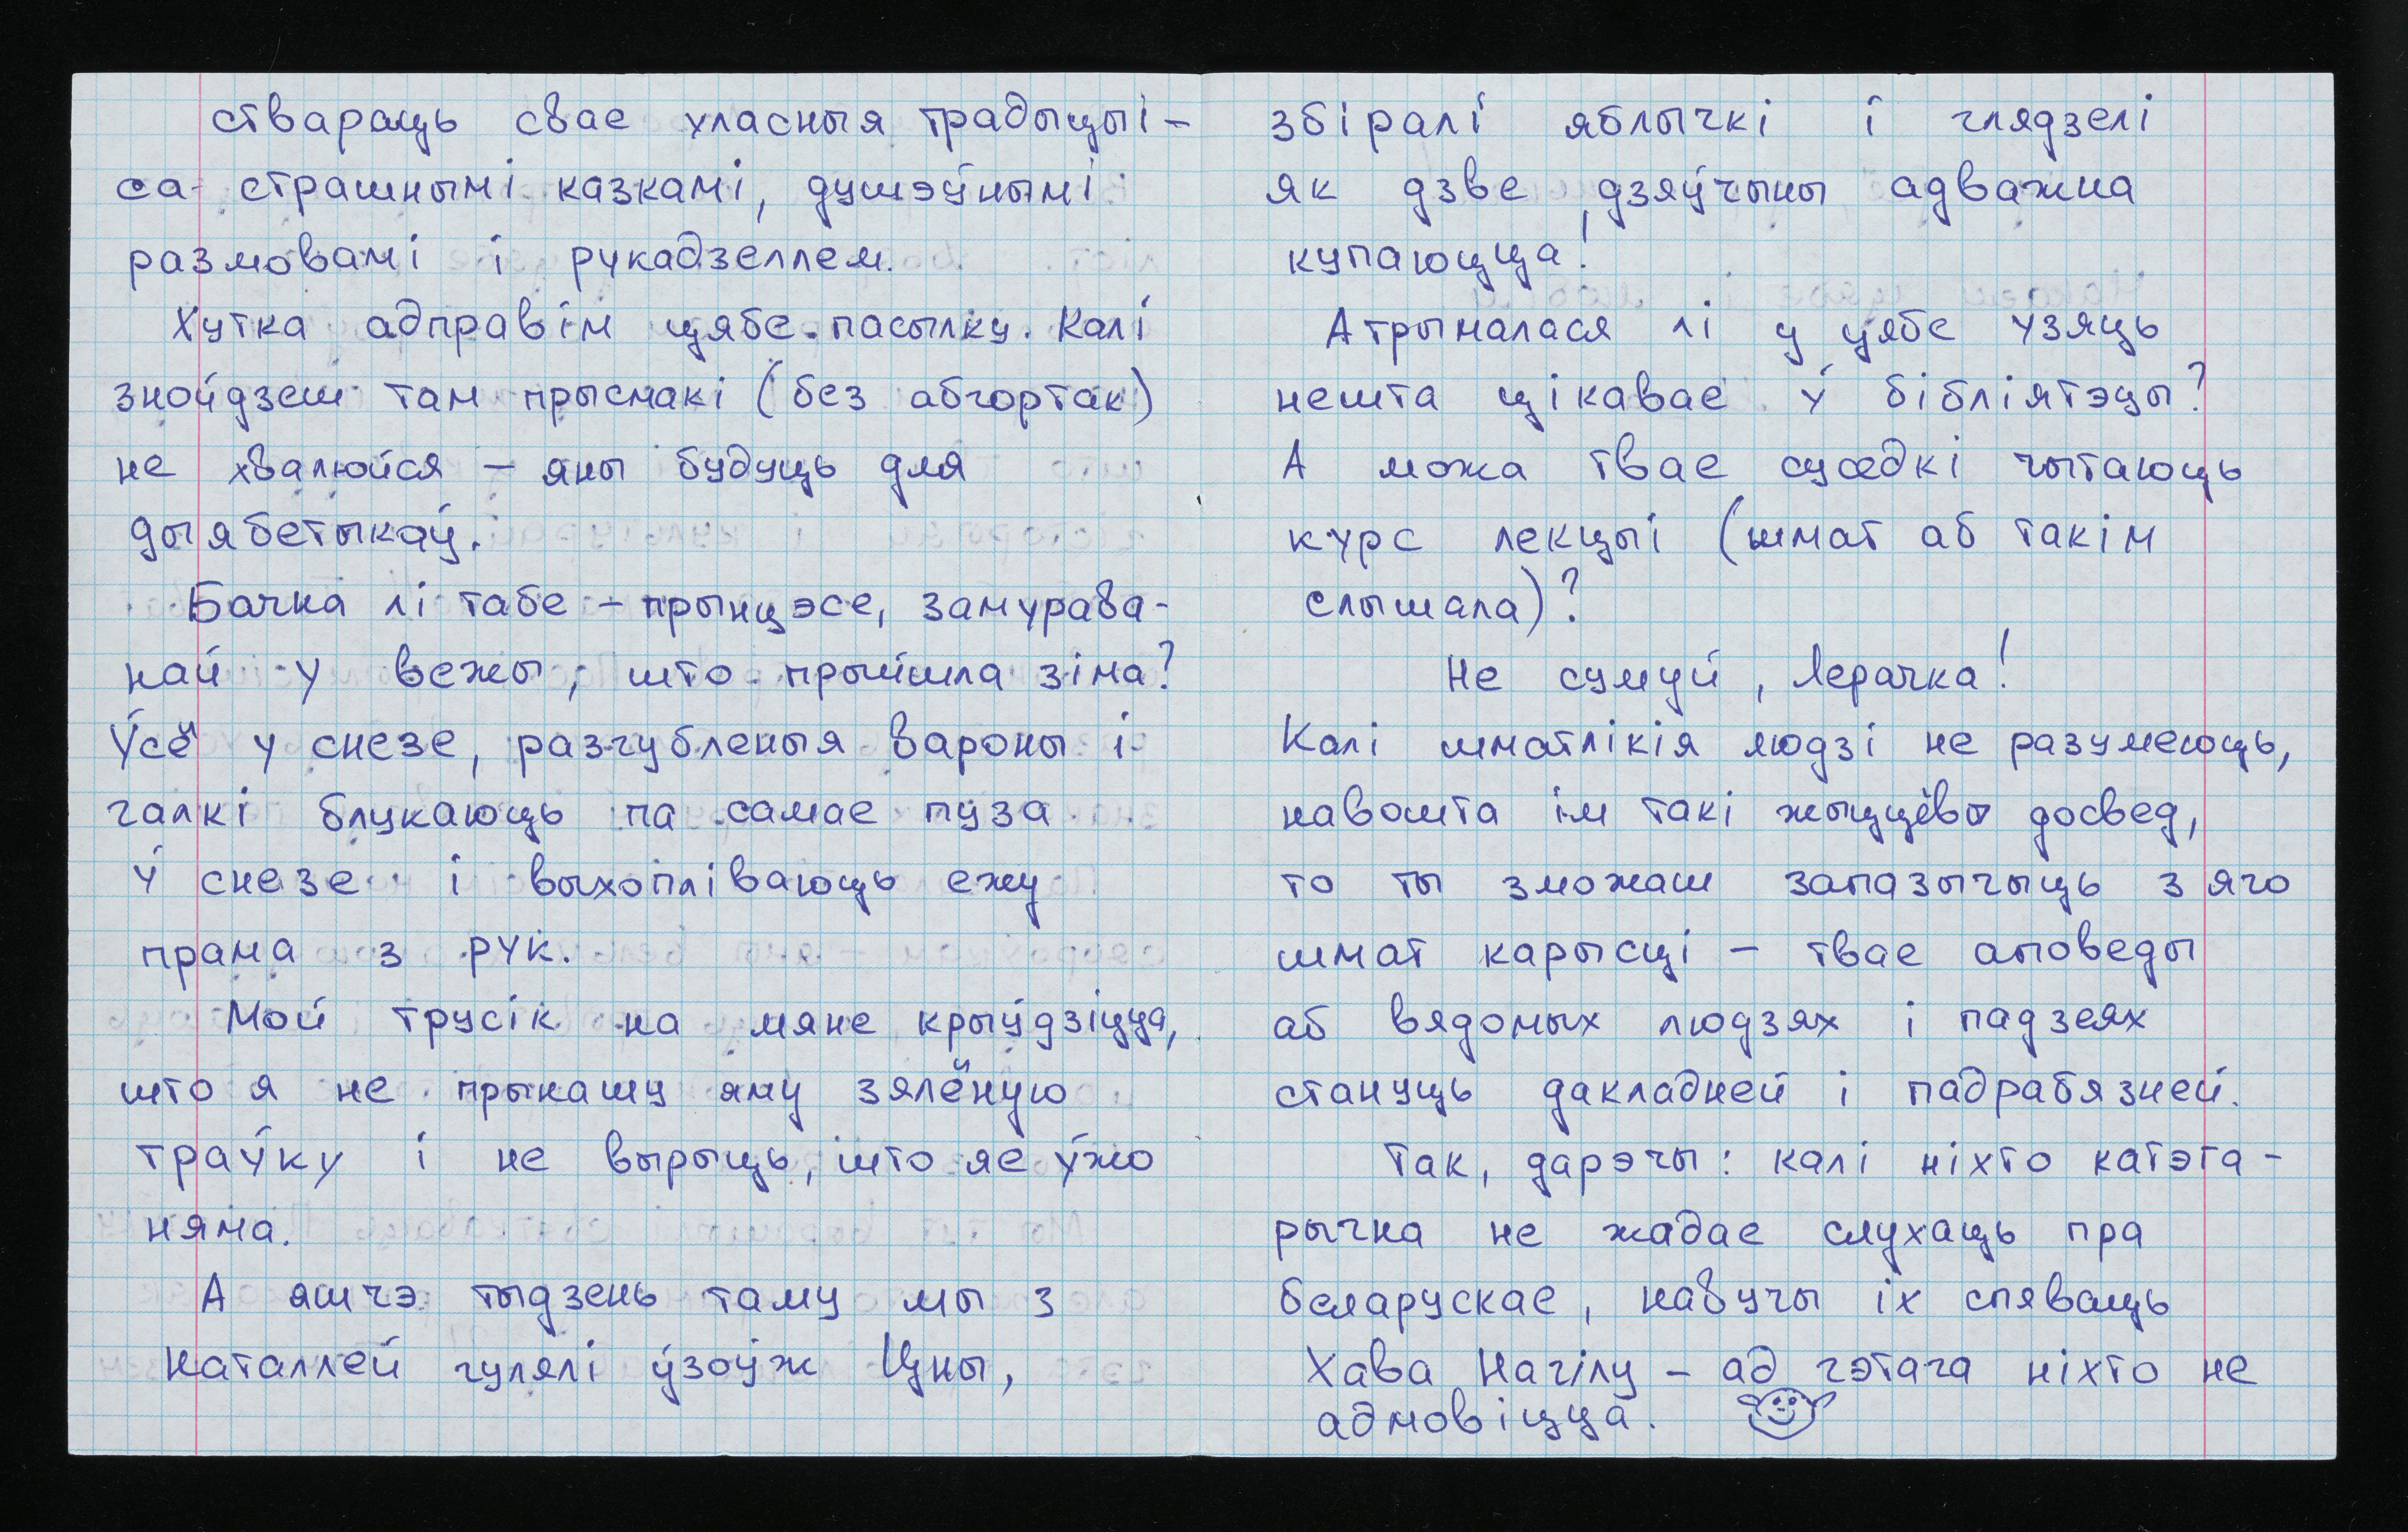 ствараць свае уласныя традыцыі -
са страшнымі казкамі, душэўнымі
размовамі і рукадзеллем.
Хутка адправім цябе пасылку. Калі
знойдзеш там прысмакі (без абгортак)
не хвалюйся - яны будуць для
дыябетыкаў.
Бачна лі табе - прынцэсе, замурава-
най у вежы, што прыйшла зіма?
Ўсё у снезе, разгубленыя вароны і
галкі блукаюць па самае пуза
ў снезе і выхопліваюць ежу
прама з рук.
Мой трусік на мяне крыўдзіцца,
што я не прынашу яму зялёную
траўку і не вырыць, што яе ўжо
няма.
А яшчэ тыдзень таму мы з
Наталлей гулялі ўзоўж Цны,
збіралі яблычкі і глядзелі
як дзве дзяўчыны адважна
купаюцца!
Атрымалася лі у цябе узяць
нешта цікавае ў бібліятэцы?
А можа твае суседкі чытаюць
курс лекцыі (шмат аб такім
слышала)?
Не сумуй, Лерачка!
Калі шматлікія людзі не разумеюць,
навошта ім такі жыццёвы досвед,
то ты зможаш запазычыць з яго
шмат карысці - твае аповеды
аб вядомых людзях і падзеях
стануць дакладней і падрабязней.
Так, дарэчы: калі ніхто катэга-
рычна не жадае слухаць пра
беларускае, навучы іх спяваць
Хава Нагілу - ад гэтага ніхто не
адмовіцца.